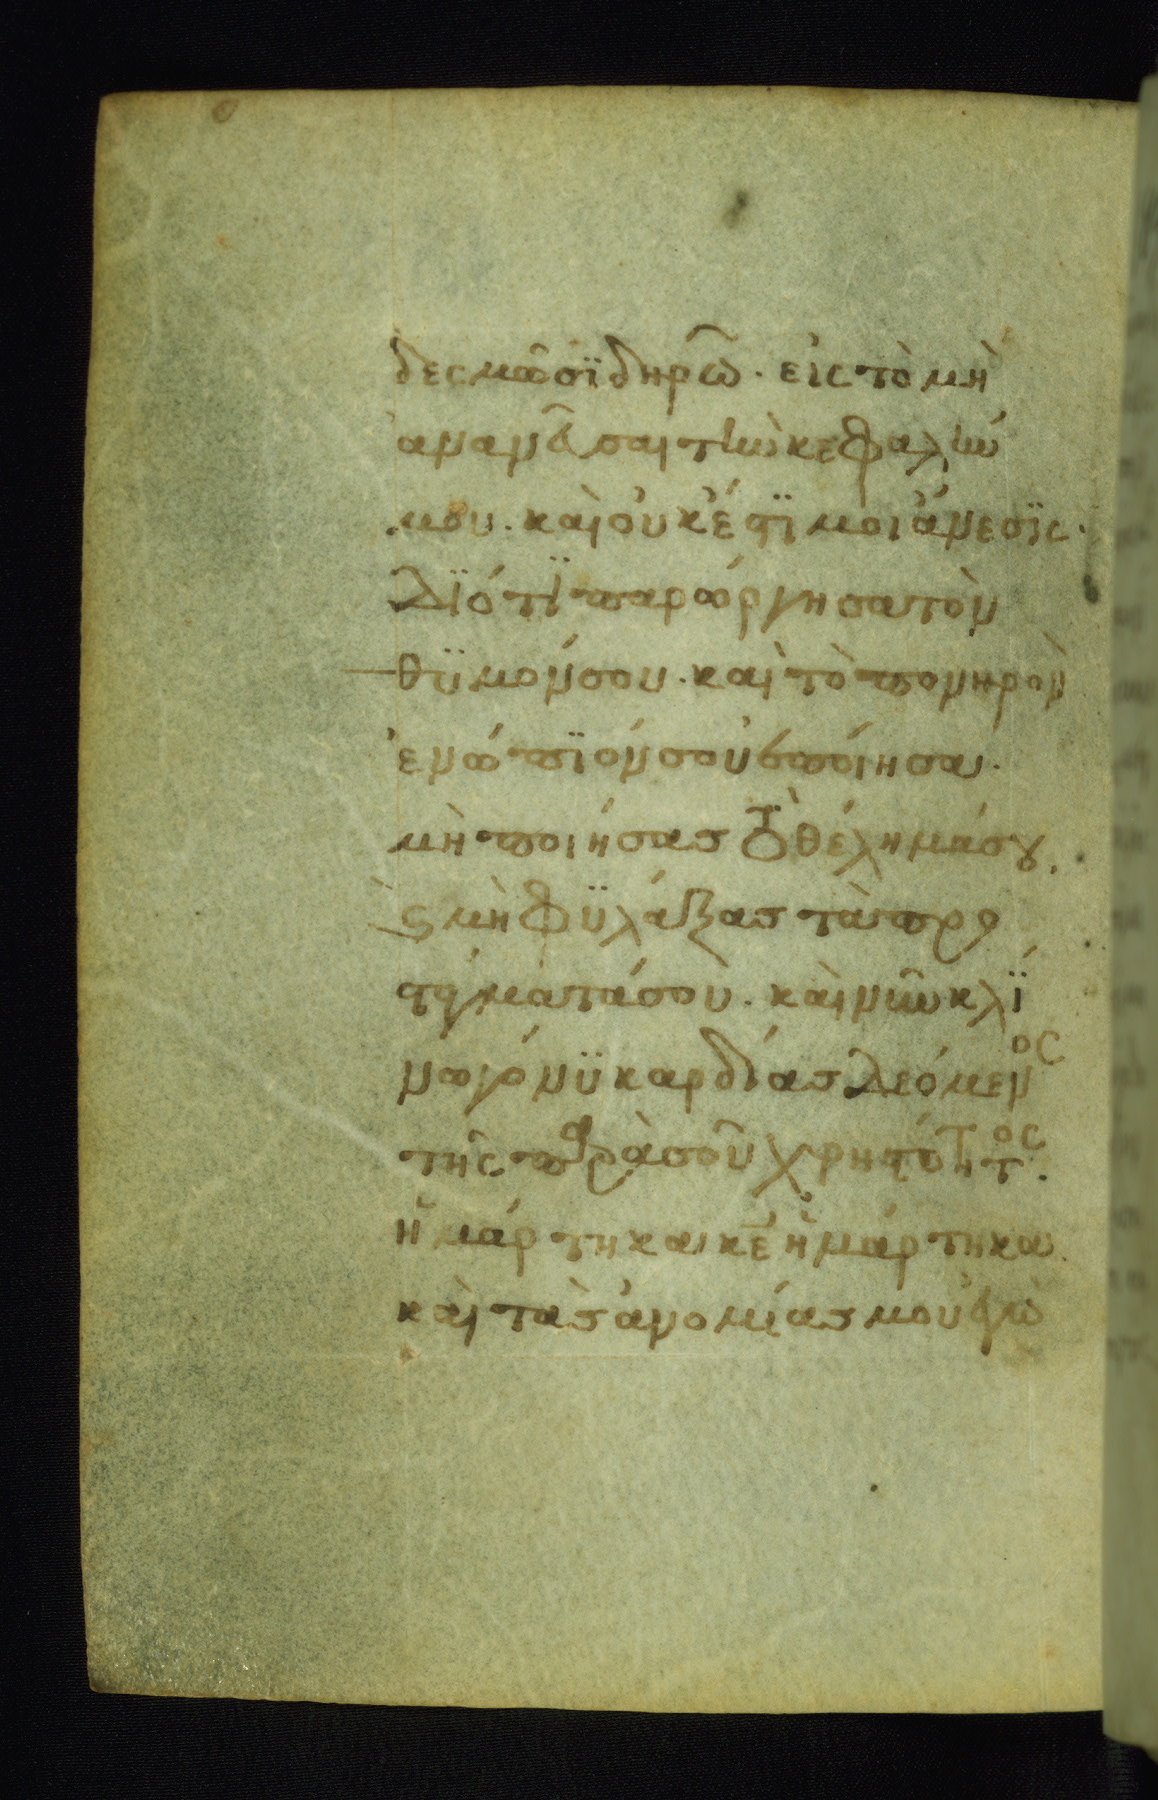 δεσμῶ σϊδηρῶ· εἰς τὸ μὴ
ἀνανεῦσαι τὴν κεφαλήν
μου· καὶ οὐκ ἔστϊ μοι ἄνεσϊς·
Δϊότϊ παρώργησα τὸν
θϋμόν σου· καὶ τὸ πονηρὸν
ἐνώπϊόν σου ἐποίησα·
μὴ ποιήσας τὸ θέλημά σου,
καὶ μὴ φϋλάξας τὰ προ
στάγματά σου· καὶ νῦν κλΐ
νω γόνϋ καρδίας δεόμενος
τῆς παρὰ σοῦ χρηστότητος·
ἡμάρτηκα κε ἡμάρτηκα·
καὶ τὰς ἀνομίας μου ἐγὼ